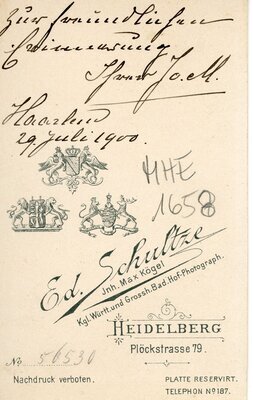 Zur freundlichen
Erinnerung
Ihrer Jo. M.
Haarlem
29 Juli 1900.
MHE
1658
Ed. Schultze
Jnh. Max Kögel
Kgl. Württ. und Grossh. Bad. Hof-Photograph.
HEIDELBERG
Plöckstrasse 79.
No 56530
Nachdruck verboten.
PLATTE RESERVIRT.
TELEPHON No 187.